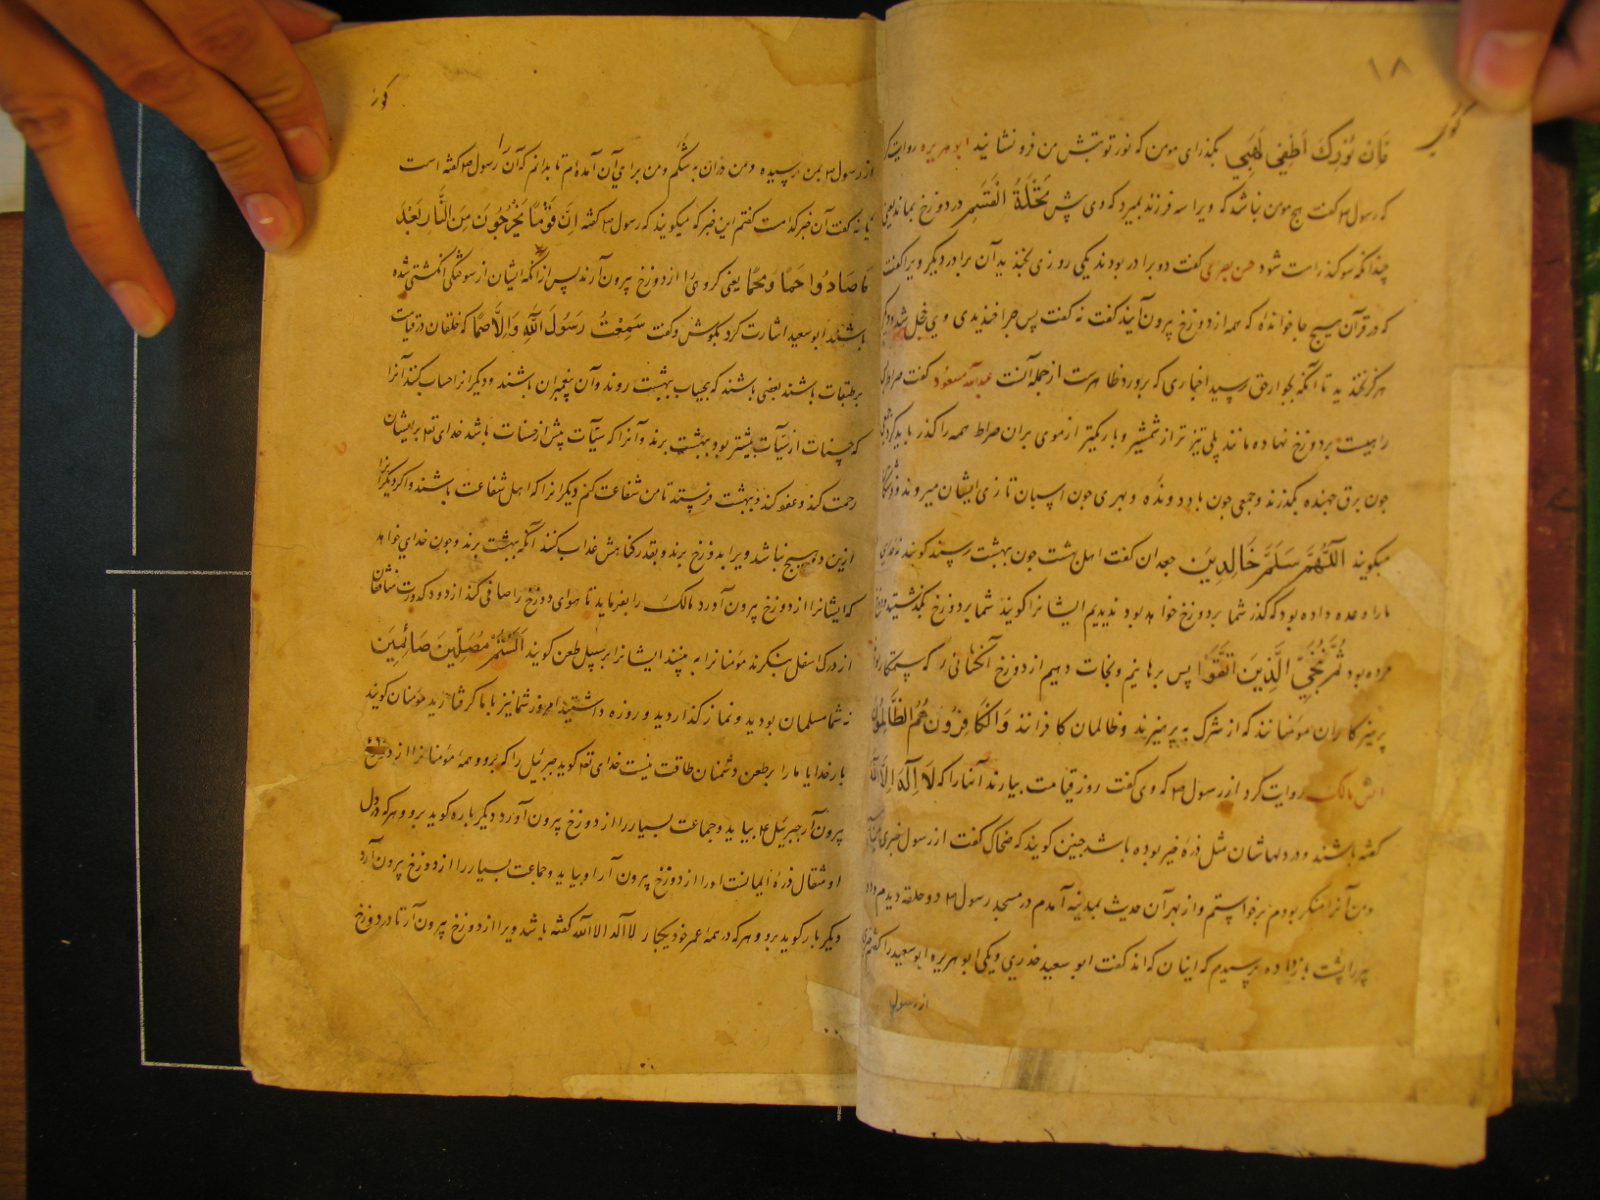 ۱۸
فَاِنَ نُورِكَ اَطْفِی لَهَبِی بگذر ای مومن که نور تو تبش من فرو نشانید ابو هریره روایت کرد
که رسول ۴ گفت هیچ مومن نباشد که ویرا سه فرزند بمیرد که وی پش تَحِلَّةُ الْقَسَمِ در دوزخ بماند یعنی
چندانکه سوکند راست شود حسن بصری گفت دو برادر بودند یکی روزی بخندید آن برادر دیگر ویرا گفت
که در قرآن هیچ جا خوانده که همه از دوزخ پیرون آیند گفت نه گفت پس چرا خندیدی وی خجل شد و دیگر
هرگز نخندید تا آنگه بجوار حق رسید اخباری که بر ورد ظاهرست از جمله آنست عبدالله مسعود گفت صراط
راهیست بر دوزخ نهاده مانند پلی تیز تر از شمشیر و باریکتر از موی بران صراط همه را گذر باید کرد
جون برق جهنده بگذرند و جمعی جون باد دونده و بهری جون اسپان تازی ایشان میروند و
میگویند اَللّهُمَّ سَلِّمْ خَالِدِینَ معدان گفت اهل بهشت جون ببهشت رسند گویند
مارا وعده داده بود که گذر شما بر دوزخ خواهد بود ندیدیم ایشانرا گویند شما بر دوزخ بگذشتید
مرده بود ثُمَّ نُنَجِّی الَّذِینَ اتَّقَوْا پس برهانیم و نجات دهیم از دوزخ آنکسانی را که
پرهیزکاران مومنانند که از شرک بپرهیزند و ظالمان کافرانند وَالْكَافِرُونَ هُمُ الظَّالِمُونَ
انس مالک روایت کرد از رسول ۴ که وی گفت روز قیامت بیارند آنها را که لَا اِلَهَ اِلَّا اللّه
گفته باشند و در دلهاشان مثل ذرهٔ خیر بوده باشد جنین گویند که ضحاک گفت از رسول خبری
و من آنرا منکر بودم برخواستم و از بهر آن حدیث بمدینه آمدم در مسجد رسول ۴ دو حلقه دیدم
پشت باز داده پرسیدم که اینان که اند گفت ابو سعید خدری و یکی ابو هریره ابو سعید را گفتم
از رسول
از رسول ۴ بمن رسیده و من دران به شکم و من برای آن آمده‌ام تا بدانم که آن را رسول ۴ گفته است
یا نه گفت آن خبر کدامست گفتم این خبر که میگویند که رسول ۴ گفته اِنَّ قَوْمًا یَخْرُجُونَ مِنَ النَّارِ بَعْدَ
مَا صَارُوا حَمًا وَ محمًا یعنی گروی را از دوزخ پیرون آرند پس از آنکه ایشان از سوختگی انگشتی شده
باشند ابو سعید اشارت کرد بگوش و گفت سَمِعْتُ رَسُولَ اللّهِ وَاِلَّا صُمَّا که خلقان در قیامت
بر طبقات باشند بعضی باشند که بیحساب ببهشت روند و آن پیغمبران باشند و دیگرانرا حساب کنند آنرا
که حسنات از سیّآت بیشتر بود ببهشت برند و آنرا که سیّآت پیش از حسنات باشد خدای تع بر ایشان
رحمت کند و عفو کند و ببهشت فرستد تا من شفاعت کنم دیگرانرا که اهل شفاعت باشند و اگر دیگرانرا
ازین دو هیچ نباشد ویرا بدوزخ برند و بقدر گناهش عذاب کنند آنگه ببهشت برند و جون خدای خواهد
که ایشانرا از دوزخ پیرون آورد مالک را بفرماید تا هوای دوزخ را صافی کند از دود و کدورت منافقان
از درک اسفل بنگرند مومنانرا به پینند ایشانرا بر سبیل طعن گویند اَلَسْتُمْ مُصَلِّینَ صَائِمِینَ
نه شما مسلمان بودید و نماز گذاردید و روزه داشتید امروز شما نیز با ما گرفتارید مومنان گویند
بار خدایا ما را بر طعن دشمنان طاقت نیست خدای تع گوید جبرئیل را که برو و همه مومنانرا از دوزخ
پرون آر جبرئیل ۴ بیاید و جماعت بسیار را از دوزخ پرون آورد دیگر باره گوید برو و هر که در دل
او مثقال ذرهٔ ایمانست او را از دوزخ پرون آر او بیاید و جماعت بسیار را از دوزخ پرون آرد
دیگر بار گوید برو و هر که در همه عمر خود یکبار لا اله الا الله گفته باشد ویرا از دوزخ پرون آر تا در دوزخ